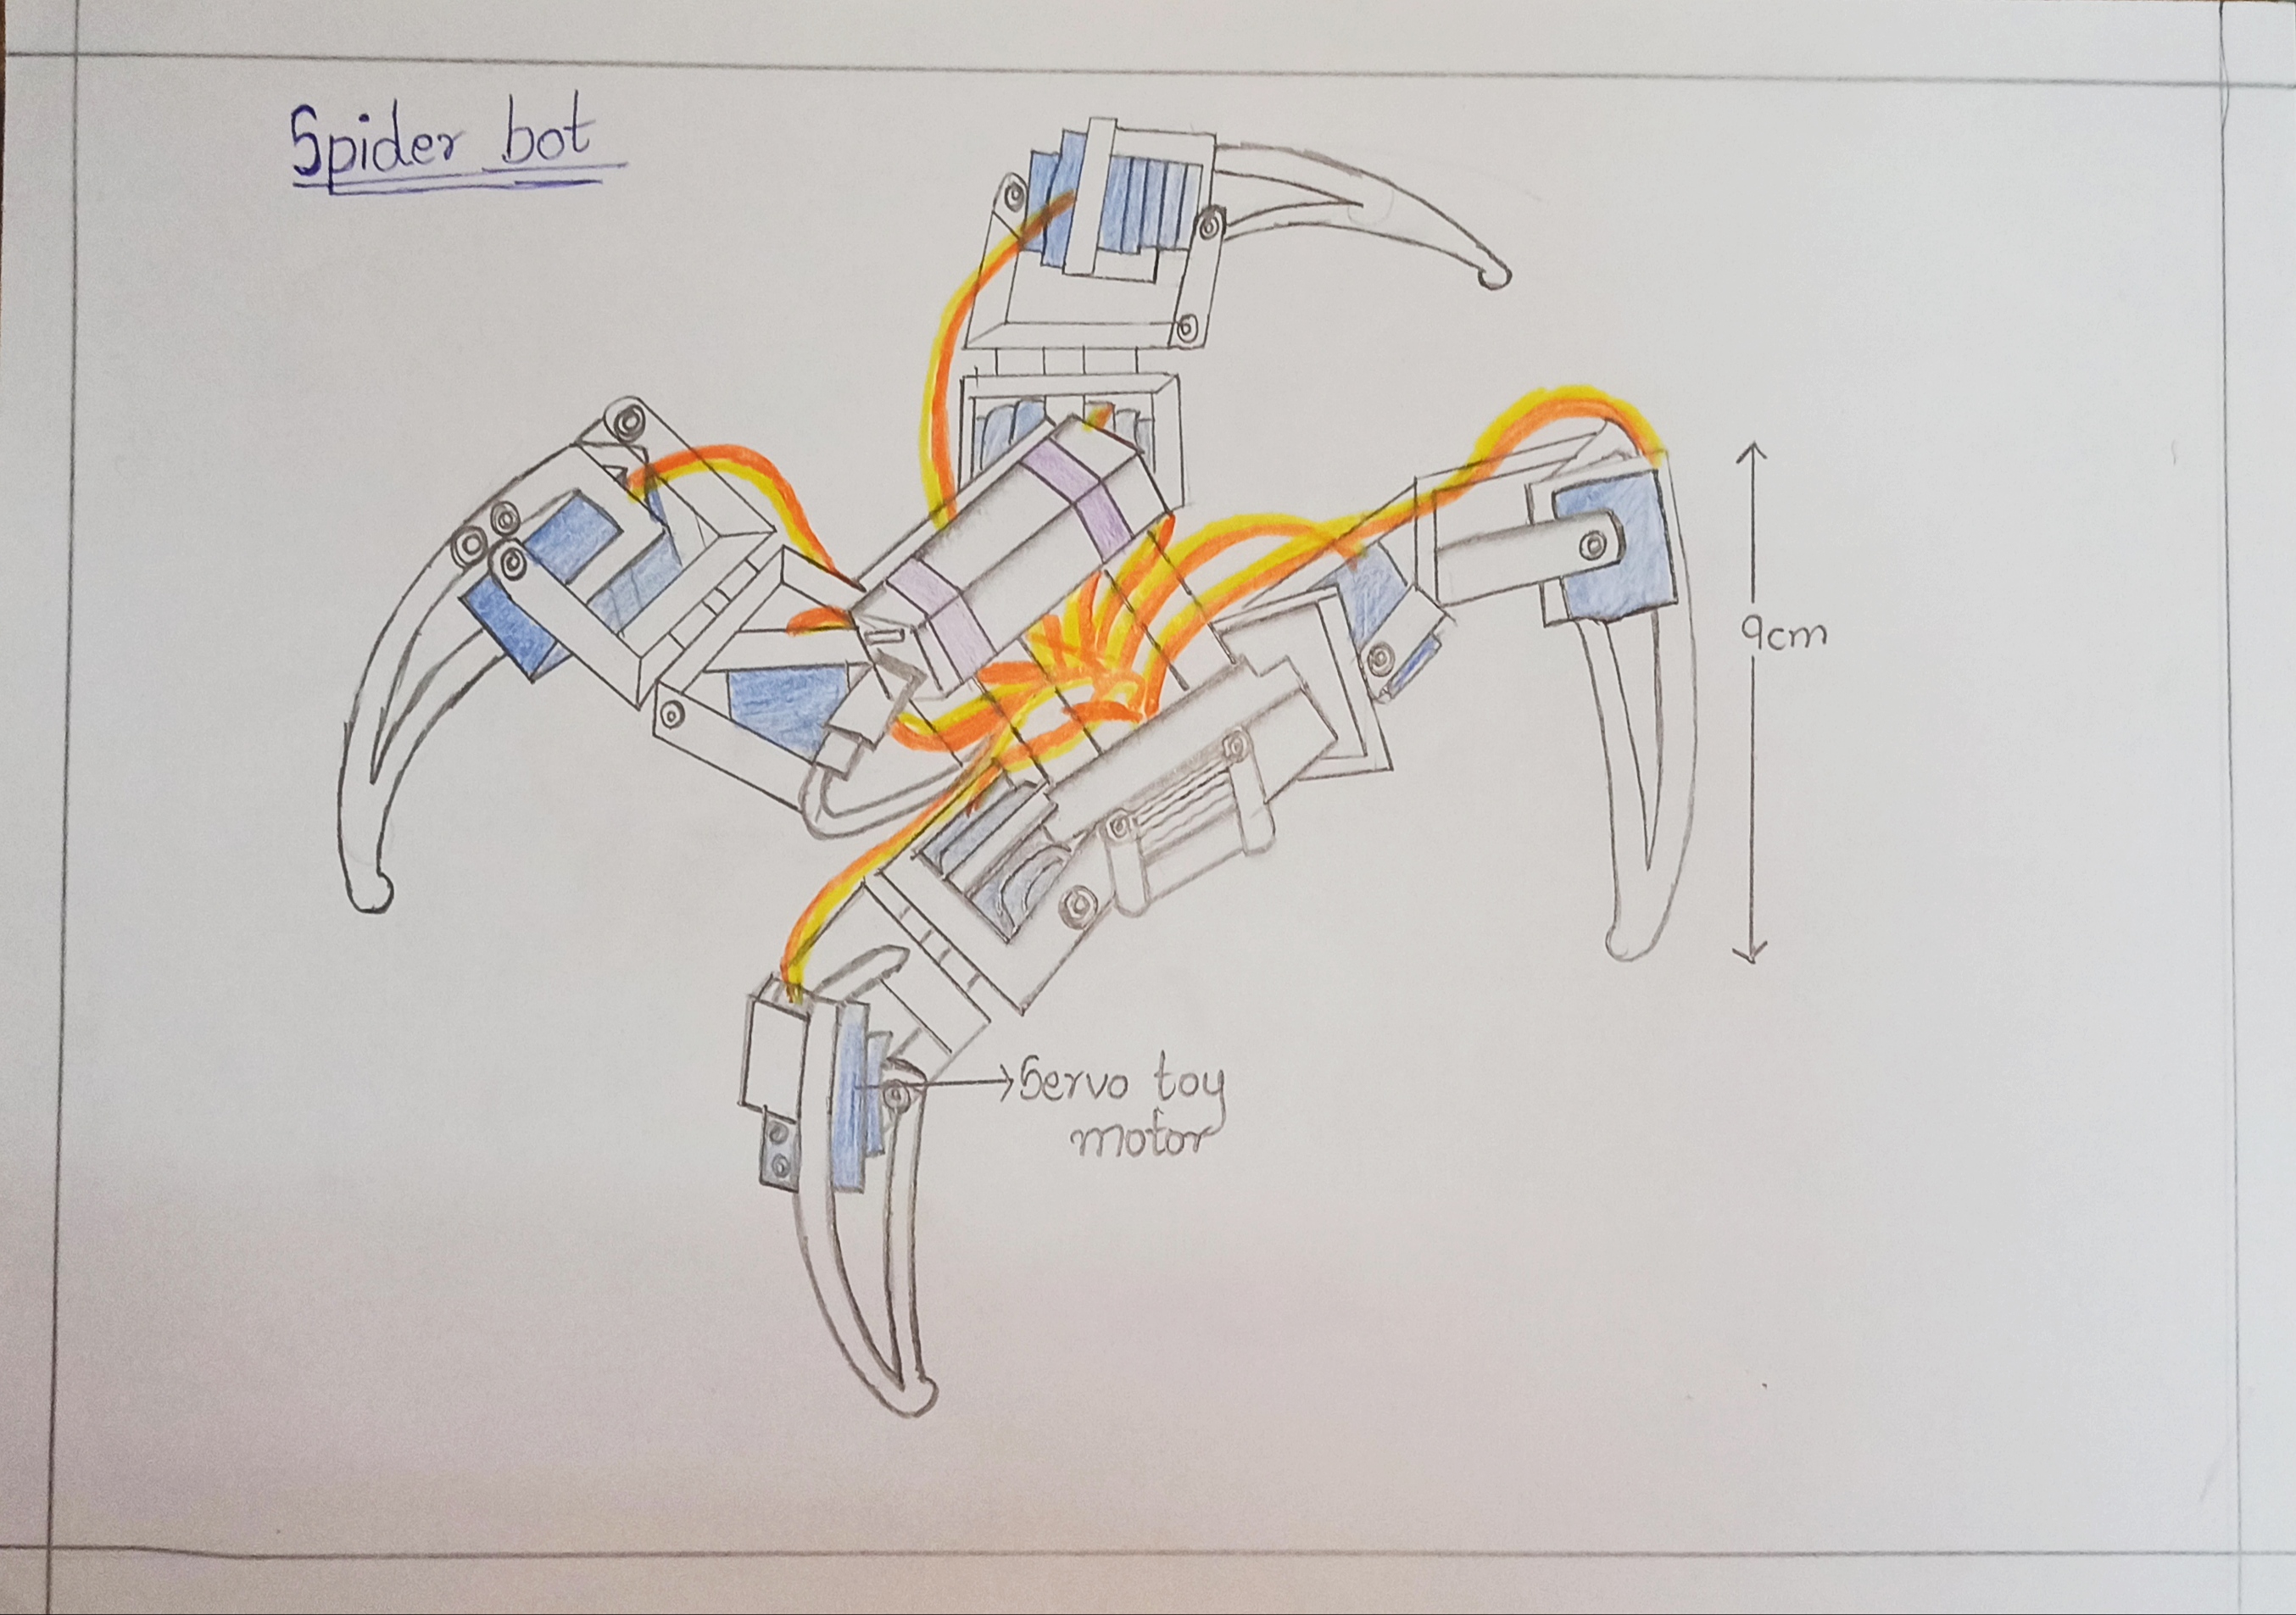 Spider bot
9cm
Servo toy
motor